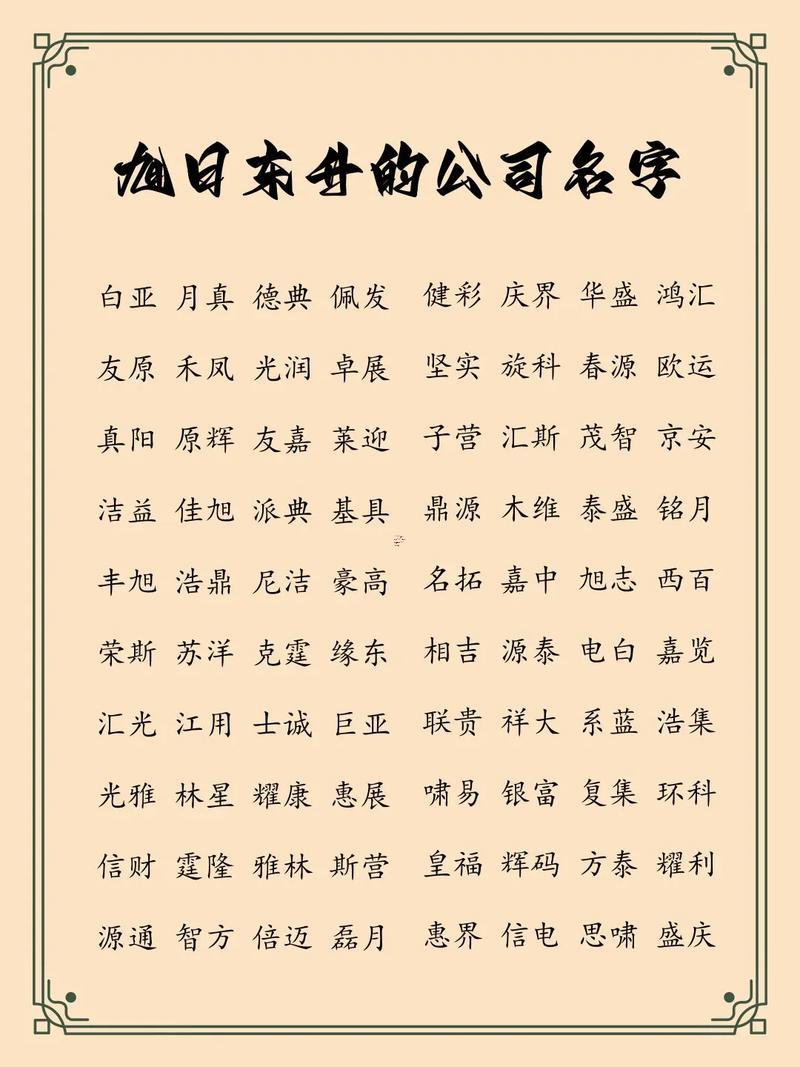 旭日东升的公司名字
白亚 月真 德典 佩发 健彩 庆界 华盛 鸿汇
友原 禾凤 光润 卓展 坚实 旋科 春源 欧运
真阳 原辉 友嘉 莱迎 子营 汇斯 茂智 京安
洁益 佳旭 派典 基具 鼎源 木维 泰盛 铭月
丰旭 浩鼎 尼洁 豪高 名拓 嘉中 旭志 西百
荣斯 苏洋 克霆 缘东 相吉 源泰 电白 嘉览
汇光 江用 士诚 巨亚 联贵 祥大 系蓝 浩集
光雅 林星 耀康 惠展 啸易 银富 复集 环科
信财 霆隆 雅林 斯营 皇福 辉码 方泰 耀利
源通 智方 倍迈 磊月 惠界 信电 思啸 盛庆